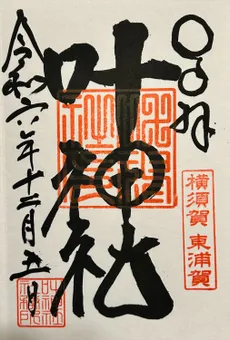 奉拝
叶神社
横須賀 東浦賀
令和六年十二月五日